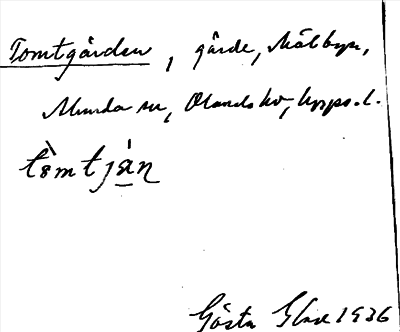 Tomtgården, gärde, Mälbyn,
Munda sn, Olands hd, Upps. l.
tòmtján
Gösta Glase 1936